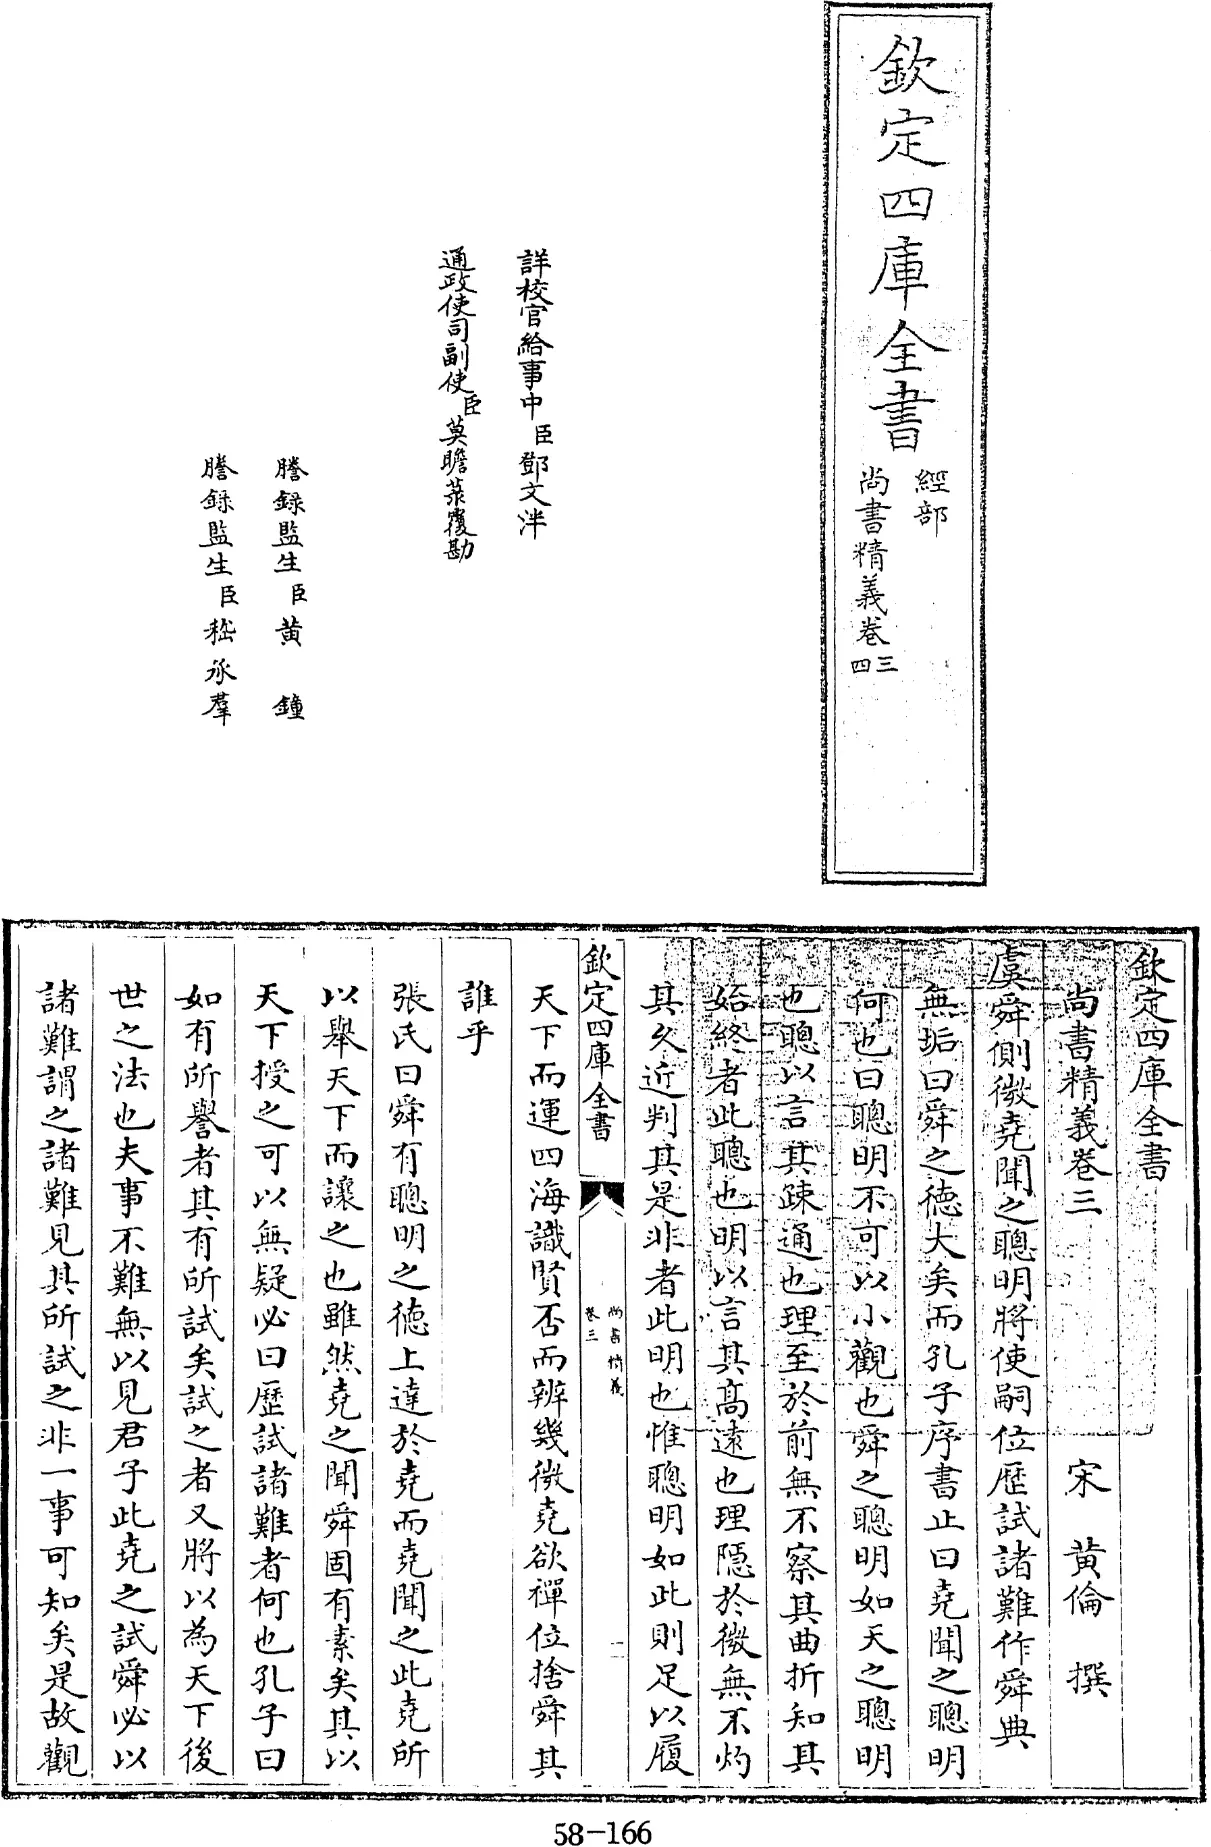 欽定四庫全書
經部
尚書精義卷三
四
詳校官給事中臣鄧文泮
通政使司副使臣莫瞻菉覆勘
謄錄監生臣黃鐘
謄錄監生臣嵇承羣
欽定四庫全書
尚書精義卷三
宋 黃倫 撰
虞舜側微堯聞之聰明將使嗣位歷試諸難作舜典
無垢曰舜之德大矣而孔子序書止曰堯聞之聰明
何也曰聰明不可以小觀也舜之聰明如天之聰明
也聰以言其疎通也理至於前無不察其曲折知其
始終者此聰也明以言其髙遠也理隱於微無不灼
其久近判其是非者此明也惟聰明如此則足以履
欽定四庫全書
尚書精義
卷三
一
天下而運四海識賢否而辨幾微堯欲禪位捨舜其
誰乎
張氏曰舜有聰明之德上達於堯而堯聞之此堯所
以舉天下而讓之也雖然堯之聞舜固有素矣其以
天下授之可以無疑必曰歷試諸難者何也孔子曰
如有所譽者其有所試矣試之者又將以為天下後
世之法也夫事不難無以見君子此堯之試舜必以
諸難謂之諸難見其所試之非一事可知矣是故觀
58-166